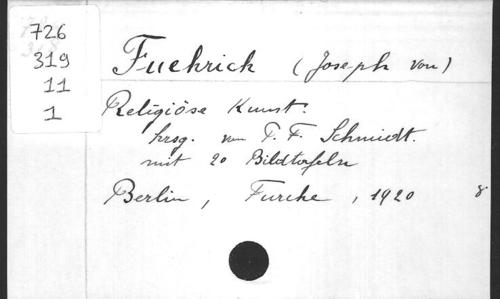 726
319
11
1
Fuehrich (Joseph von)
Religiöse Kunst.
hrsg. von P. F. Schmidt.
mit 20 Bildtafeln
Berlin, Furche, 1920 8